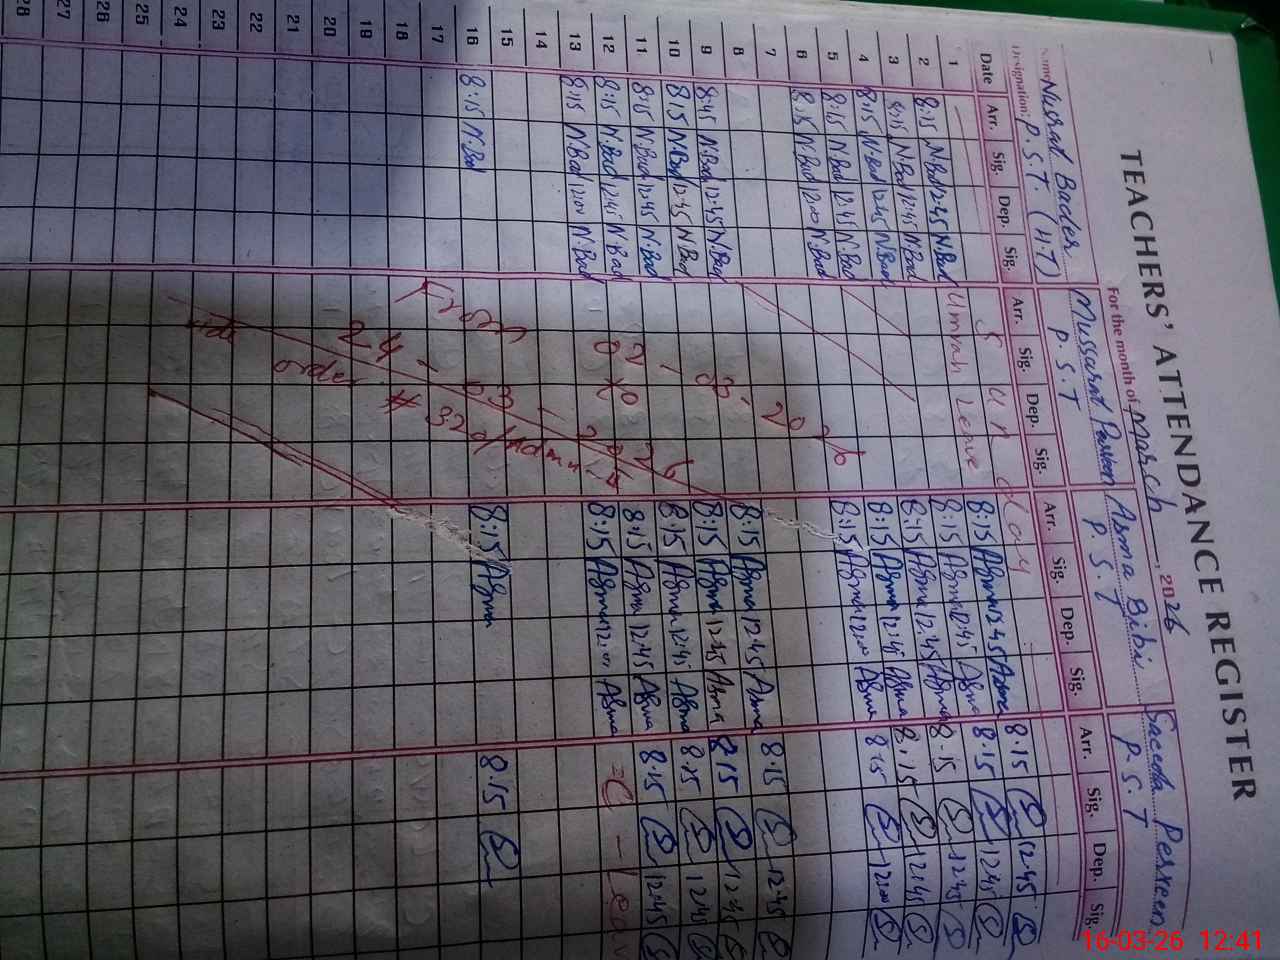 TEACHERS' ATTENDANCE REGISTER
For the month of March, 2026
Name Nusrad Bader Mussarat Parveen Asma Bibi Saeeda Perveen
Designation: P.S.T. (H.T) P.S.T P.S.T P.S.T
Date Arr. Sig. Dep. Sig. Arr. Sig. Dep. Sig. Arr. Sig. Dep. Sig. Arr. Sig. Dep. Sig
1 — S u n day
2 8:15 N.Bad 12:45 N.Bad Umrah Leave 8:15 Asma 12:45 Asma 8:15 12:45
3 8:15 N.Bad 12:45 N.Bad 8:15 Asma 12:45 Asma 8:15 12:45
4 8:15 N.Bad 12:45 N.Bad 8:15 Asma 12:45 Asma 8:15 12:45
5 8:15 N.Bad 12:45 N.Bad 8:15 Asma 12:45 Asma 8:15 12:45
6 8:15 N.Bad 12:00 N.Bad 8:15 Asma 12:00 Asma 8:15 12:00
7
8
9 8:45 N.Bad 12:45 N.Bad 8:15 Asma 12:45 Asma 8:15 12:45
10 8:15 N.Bad 12:45 N.Bad 8:15 Asma 12:45 Asma 8:15 12:45
11 8:15 N.Bad 12:45 N.Bad 8:15 Asma 12:45 Asma 8:15 12:45
12 8:15 N.Bad 12:45 N.Bad 8:15 Asma 12:45 Asma 8:15 12:45
13 8:15 N.Bad 12:00 N.Bad 8:15 Asma 12:00 Asma C - Leav
14
15
16 8:15 N.Bad 8:15 Asma 8:15
17
18
19
20
21
22
23
24
25
26
27
28
From 02-03-2026
To
24-03-2026
vide order # 320/Admn
16-03-26 12:41